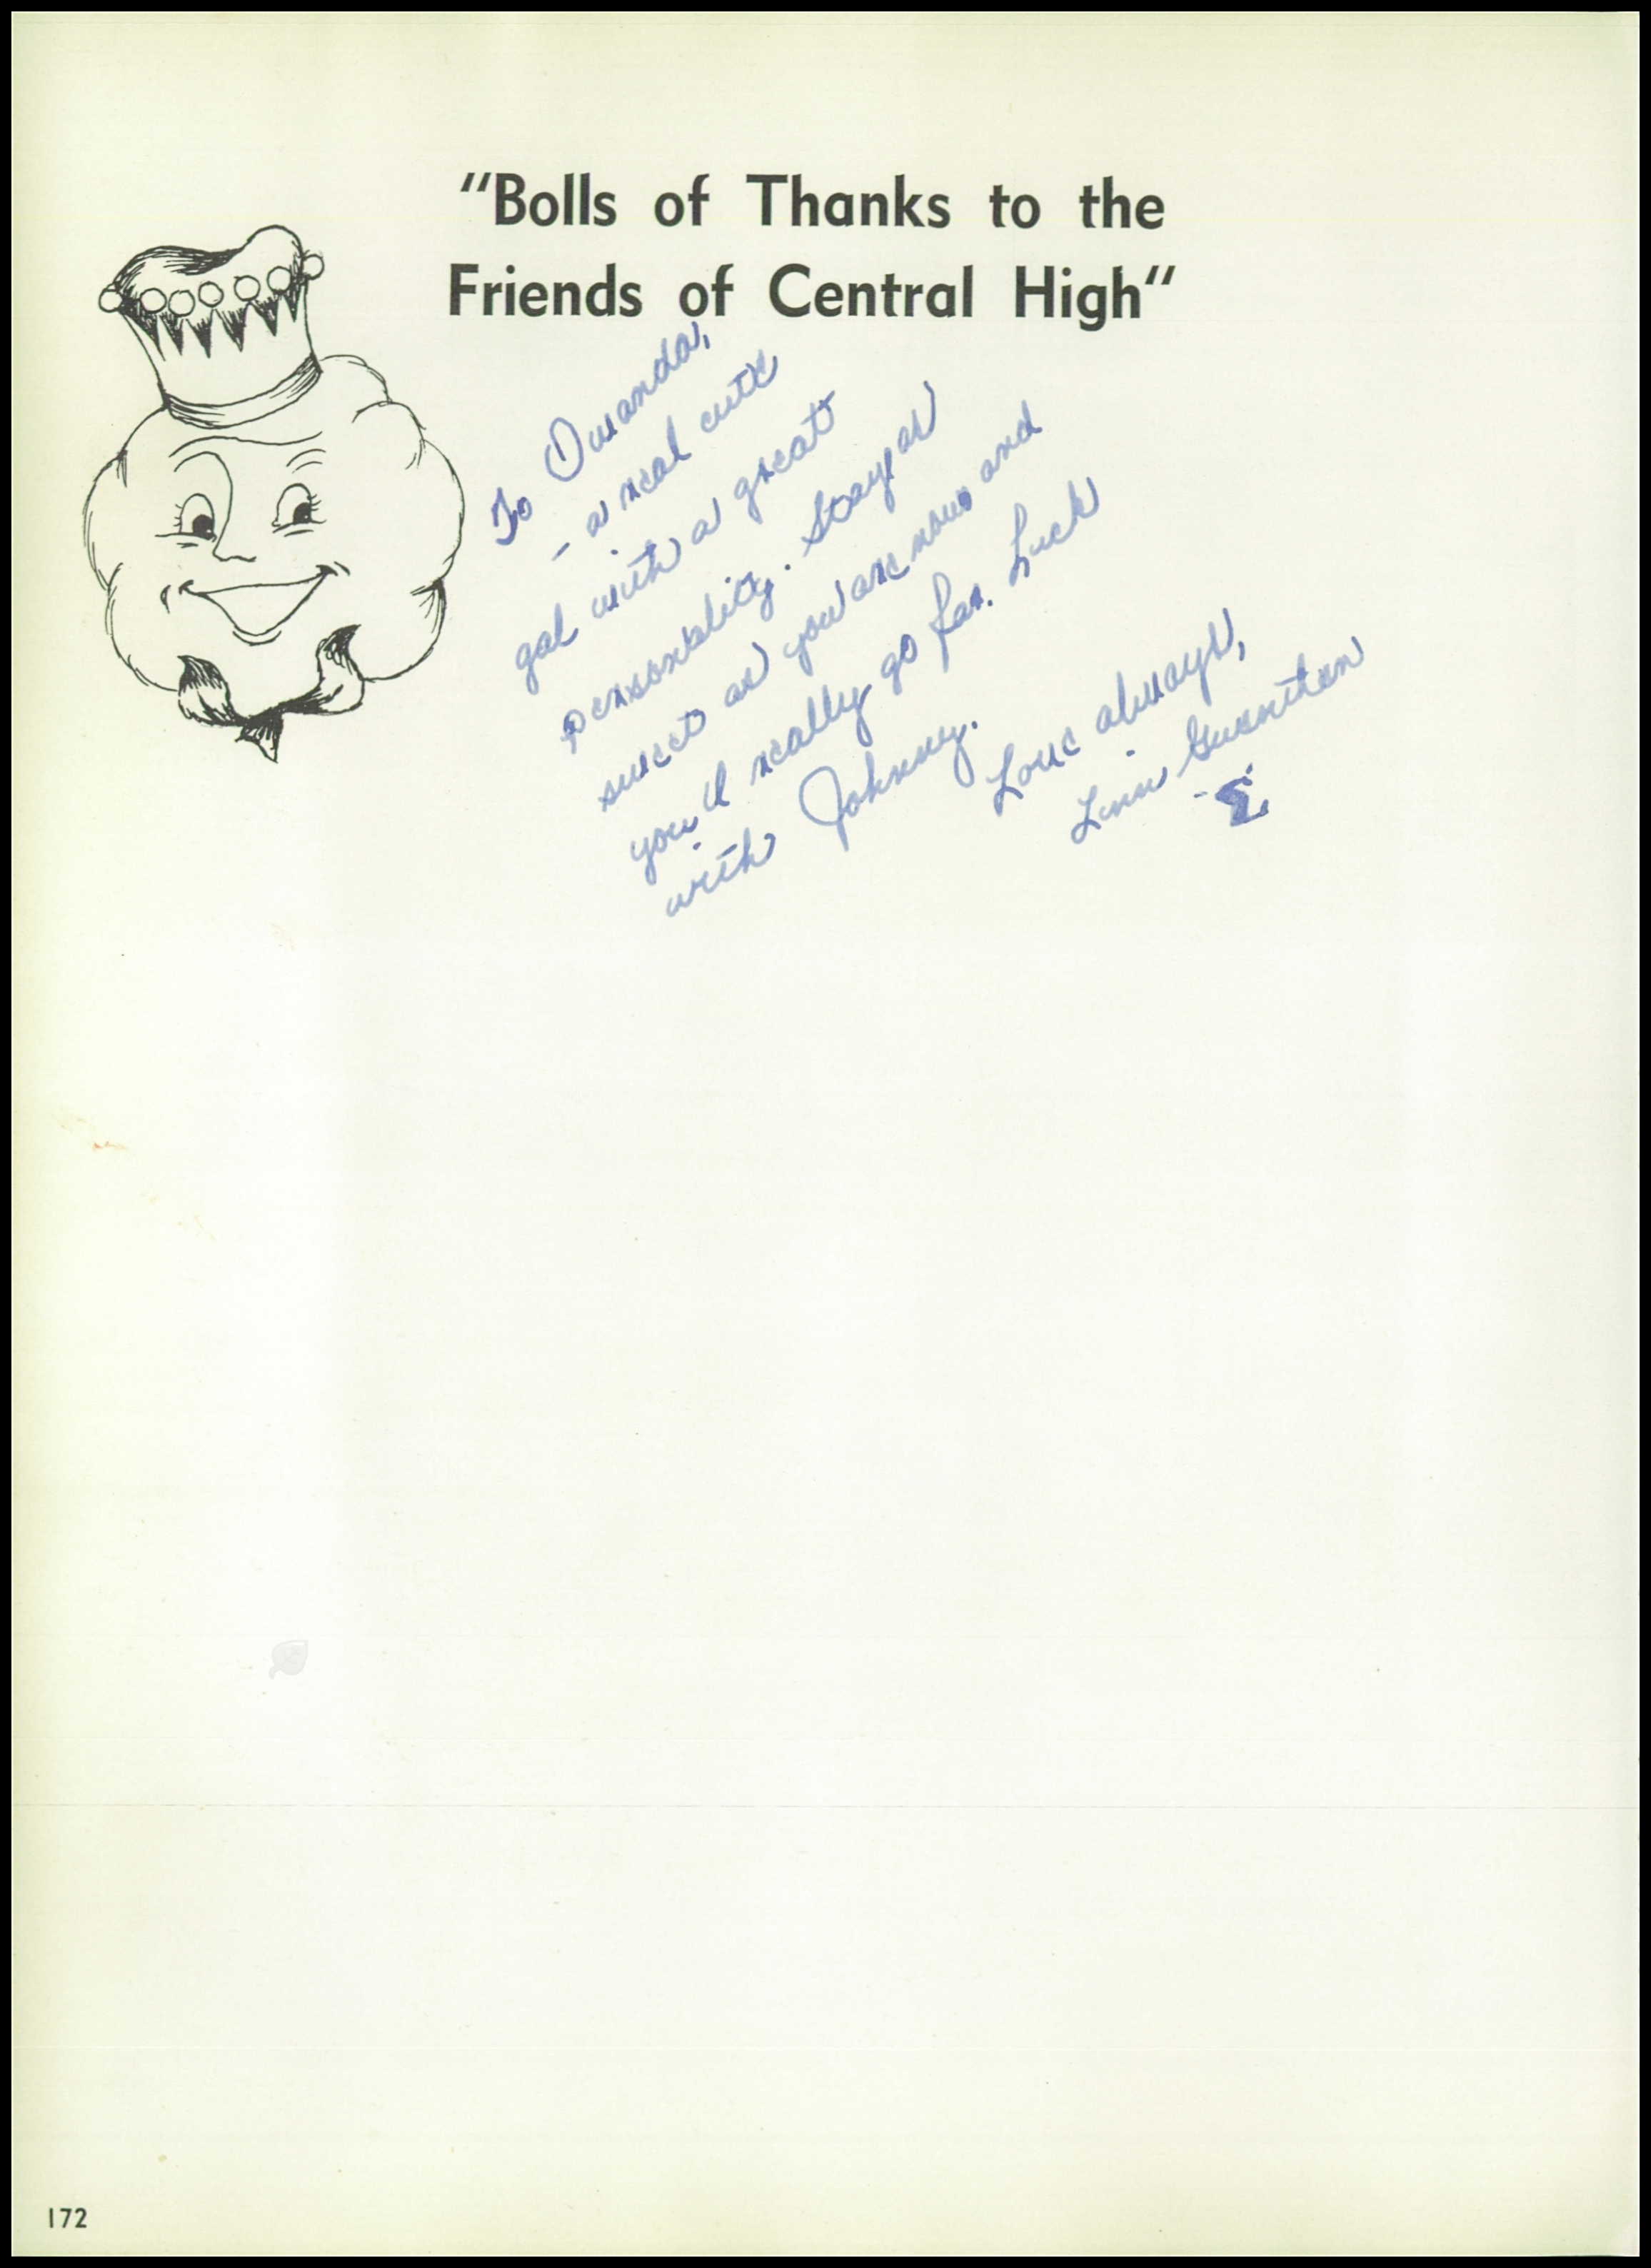 "Bolls of Thanks to the
Friends of Central High"
To Owanda,
- a real cute
gal with a great
personality. Stay as
sweet as you are now and
you'll really go far. Luck
with Johnny.
Love always,
172